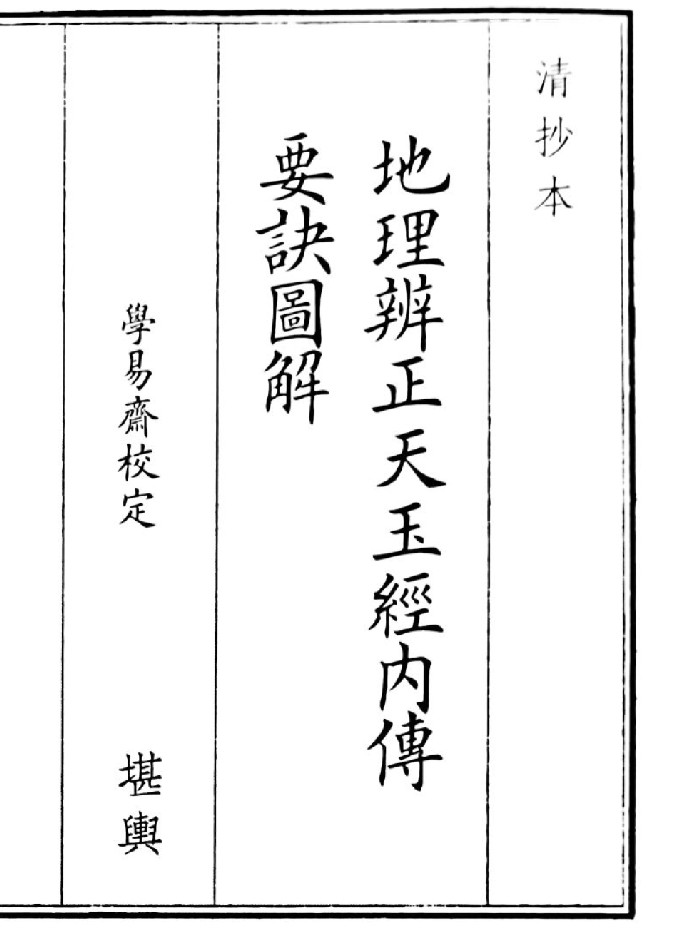 清抄本
地理辨正天玉經內傳
要訣圖解
學易齋校定
堪輿